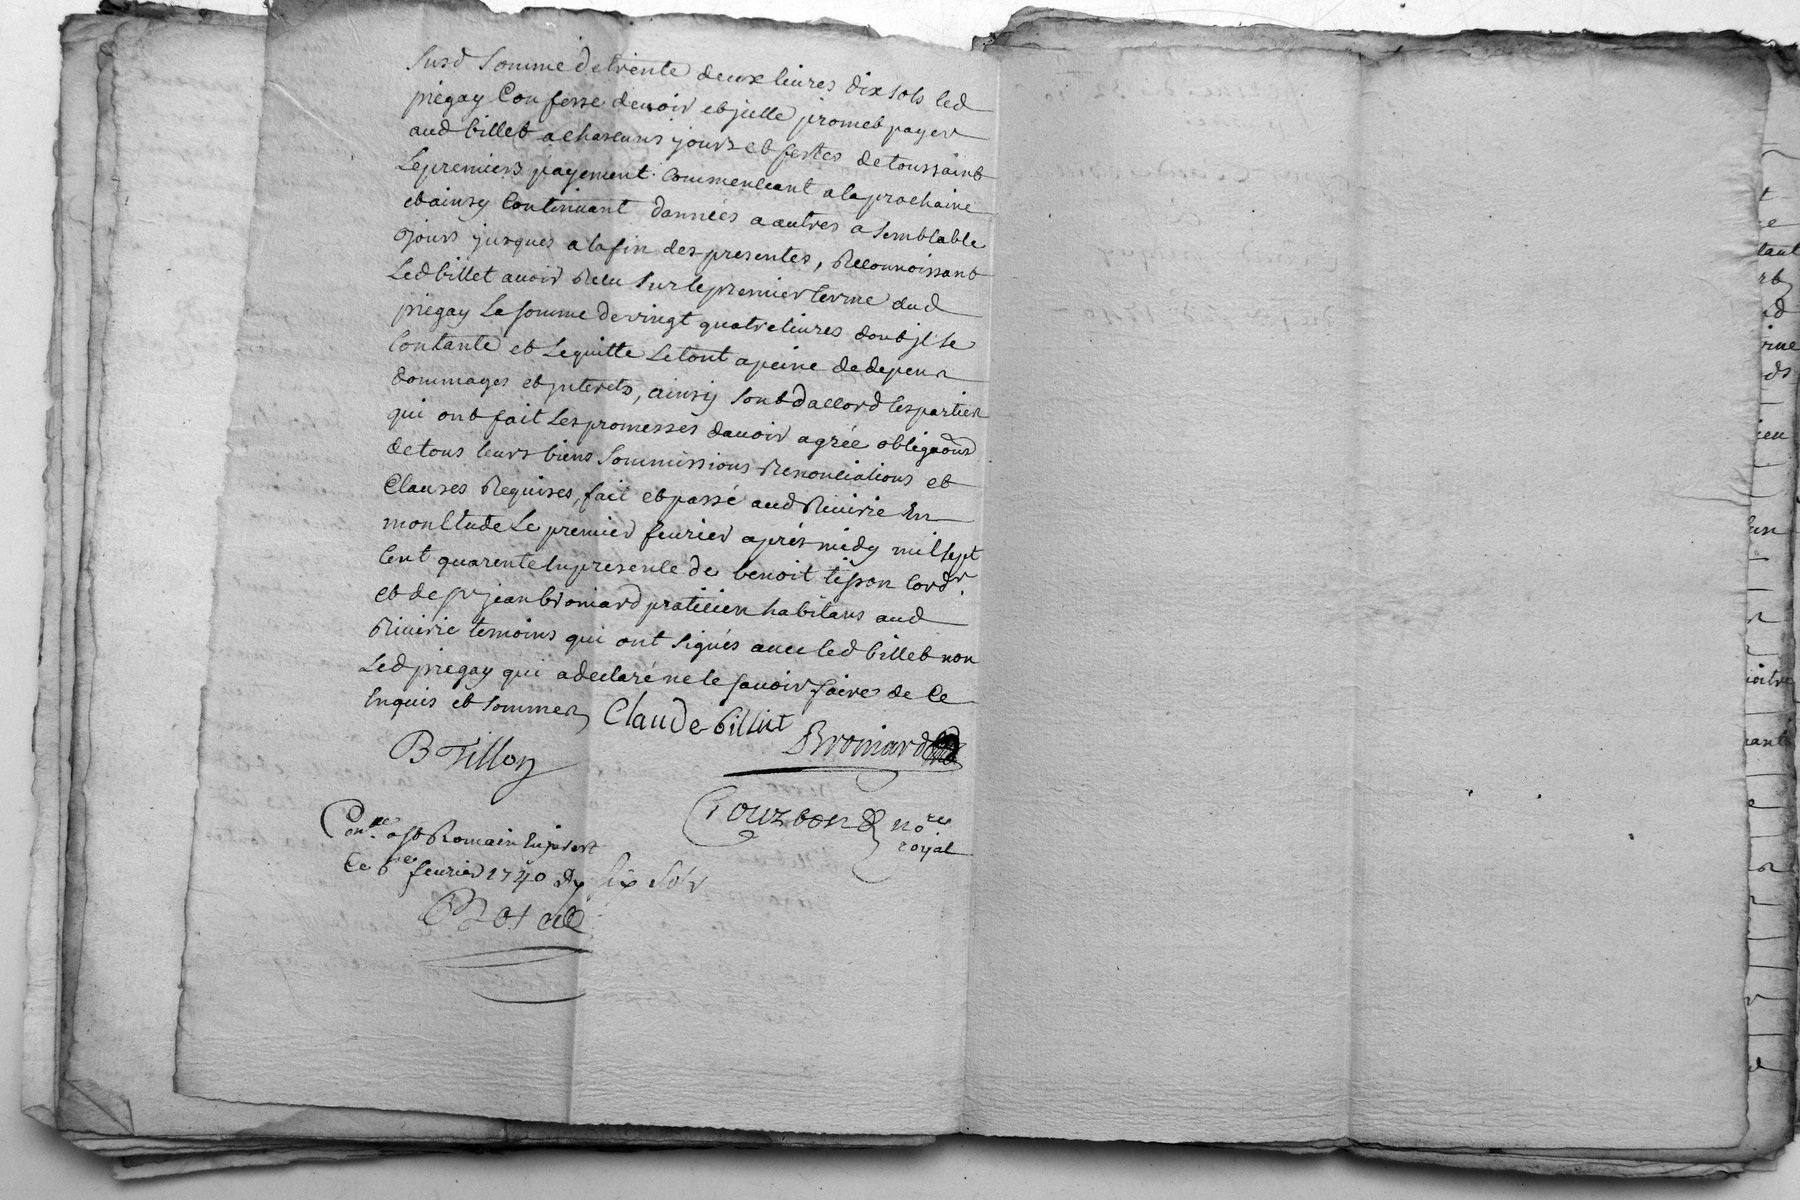 susd somme de trente deux livres dix sols led
piegay Confesse devoir et jcelle promet payer
aud billet a chascuns jours et festes de toussaint
le premiers payement commenceant a la prochaine
et ainsy Continuant dannées a autres a semblable
jours jusques a la fin des presentes, Reconnoissant
Led billet avoir Receu sur le premier terme dud
piegay La somme de vingt quatre livres dont jl se
Contante et Lequitte Le tout a peine de depens
dommages et jnterets, ainsy sont daccord les parties
qui ont fait Les promesses davoir agrée obligaons
de tous leurs biens sommissions Renonciations et
Clauses Requises, fait et passé aud Riuirie En
mon Etude Le premier feurier aprés midy mil sept
cent quarente En presence de benoit tisson cordr.
et de sr jean broniard praticien habitans aud
Riuirie temoins qui ont signés avec led billet non
Led piegay qui a declaré ne le sçavoir faire de Ce
Enquis et sommer
Claude billiet
Broniard
B Tisson
nore
royal
Conlle a st Romain En jarest
Ce feurier 1740 six sols